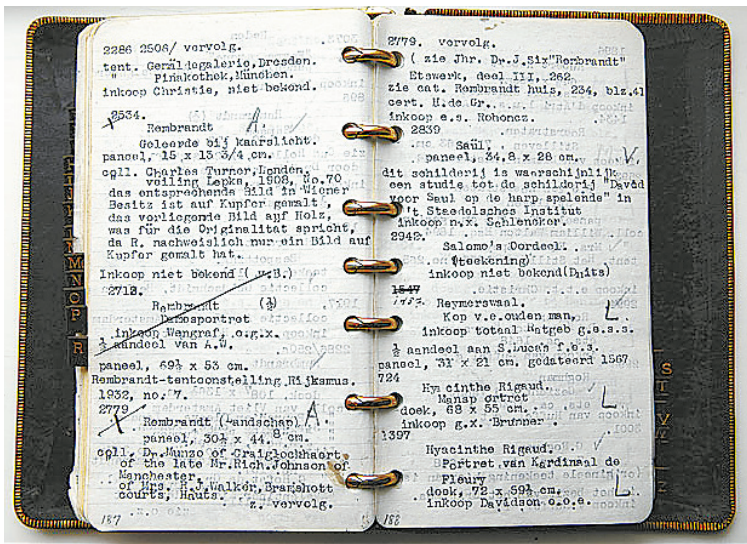 2286 2508/ vervolg.
tent. Geräldegalerie,Dresden.
" Pinakothek,München.
inkoop Christie, niet bekend.
2534.
Rembrandt A.
Geleerde bij kaarslicht.
paneel, 15 x 13 3/4 cm.
coll. Charles Turner,Londen.
veiling Lepke, 1908, No.70
das entsprechende Bild in Wiener
Besitz ist auf Kupfer gemalt
das vorliegende Bild auf Holz,
was für die Originalität spricht,
da R. nachweislich nur ein Bild auf
Kupfer gemalt hat.
Inkoop niet bekend
2712.
Rembrandt (½)
Damesportret
inkoop Wangraf, o.g.x.
½ aandeel van A.W.
paneel, 69½ x 53 cm.
Rembrandt-tentoonstelling Rijksmus.
1932, no.
2779
Rembrandt (Landschap) A.
paneel, 30½ x 44.8 cm.
coll. Dr.Munzo of Craiglockhaert
of the late Mr.Rich.Johnson of
Manchester.
of Mrs. R.J.Walker,Bramshott
courts, Hauts.
z. vervolg.
187
2779. vervolg.
( zie Jhr. Dr.J.Six"Rembrandt"
Etswerk, deel III, 262
zie cat. Rembrandt huis, 234, blz.41
cert. H.de Gr.
inkoop e.s. Rohoncz.
2839
Saul
paneel, 34,8 x 28 cm. V.
dit schilderij is waarschijnlijk
een studie tot de schilderij "David
voor Saul op de harp spelende" in
't Staedelsches Institut
inkoop n.x. Gehlencker.
2942.
Salomo's Oordeel.
(teekening)
inkoop niet bekend(Duits)
1547
Reymerswaal.
Kop v.e.ouden man, L
inkoop totaal Ratgeb g.e.s.s.
½ aandeel aan S.Lucas f.e.s.
paneel, 31 x 21 cm. gedateerd 1567
724
Hyacinthe Rigaud.
Mansportret L
doek, 68 x 55 cm.
inkoop g.x. Brunner.
1397
Hyacinthe Rigaud.
Portret van Kardinaal de
Fleury L
doek, 72 x 59½ cm.
inkoop Davidson o.o.e.
188
M
N
O
P
R
S
T
V
W
Z